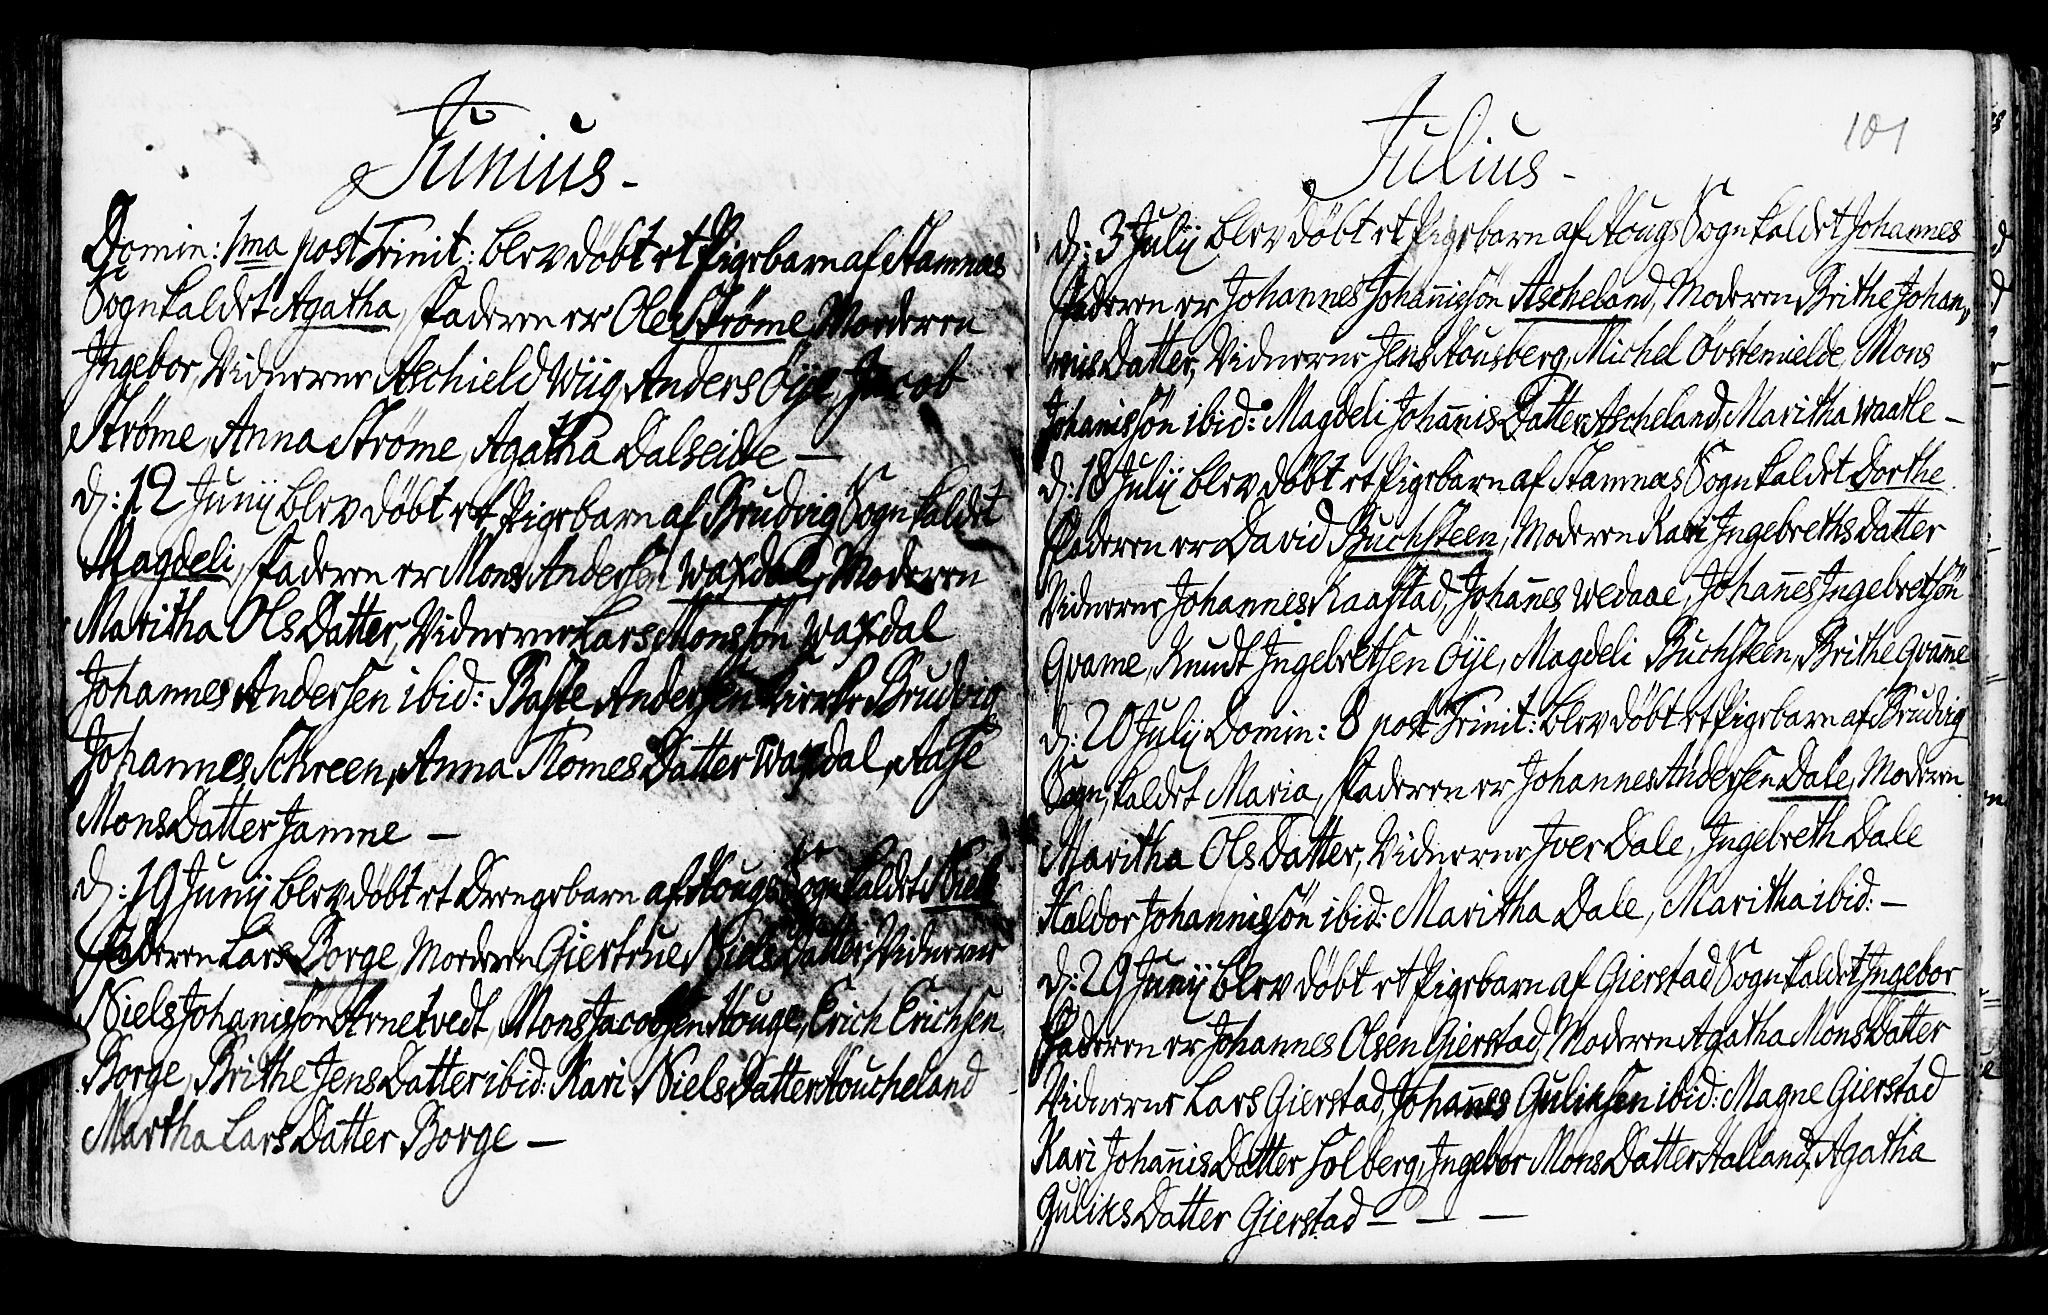 Junius -
Domin: 1ma post Trinit: blev döbt et Pigebarn af Stamnæs
Sogn kaldet Agatha, Faderen er Ole Ströme, Moderen
Ingebor, Vidnerne Aschield Wiig, Anders Öye, Jacob
Ströme, Anna Ströme, Agatha Dalseide —
d: 12 Junij blev döbt et Pigebarn af Brudvig Sogn kaldet
Magdeli, Faderen er Mons Andersen Waxdal, Moderen
Maritha Ols Datter, Vidnerne Lars Monssön Waxdal
Johannes Andersen ibid: Baste Andersen Brudvig
Johannes Schreen, Anna Thomes Datter Waxdal, Aase
Mons Datter Jamne —
d: 19 Junij blev döbt et Drengebarn af Hougs Sogn kaldet Niels
Faderen Lars Borge, Moderen Giertrue Niels Datter, Vidnerne
Niels Johanissön Arnetvedt, Mons Jacobsen Houge, Erich Erichsen
Borge, Brithe Jens Datter ibid: Kari Niels Datter Houcheland
Martha Lars Datter Borge —
Julius -
101
d: 3 Julij blev döbt et Pigebarn af Hougs Sogn kaldet Johannes
Faderen er Johannes Johanissön Ascheland, Moderen Brithe Johan
nis Datter, Vidnerne Jens Housberg, Michel Övstemielde, Mons
Johanissön ibid: Magdeli Johanis Datter Ascheland, Maritha Waatle —
d: 18 Julij blev döbt et Pigebarn af Stamnæs Sogn kaldet Dorthe
Faderen er David Buchsteen, Moderen Kari Ingebreths Datter
Vidnerne Johannes Kaastad, Johanes Wedaae, Johanes Ingebretsön
Qvame, Knudt Ingebretsen Öije, Magdeli Buchsteen, Brithe Qvame
d: 20 Julij Domin: 8 post Trinit: blev döbt et Pigebarn af Brudvig
Sogn, kaldet Maria, Faderen er Johannes Andersen Dale, Moderen
Maritha Ols Datter, Vidnerne Iver Dale, Ingebreth Dale
Haldor Johannissön ibid: Maritha Dale, Maritha ibid: —
d: 29 Junij blev döbt et Pigebarn af Gierstad Sogn kaldet Ingebor
Faderen er Johannes Olsen Gierstad, Moderen Agatha Mons Datter
Vidnerne Lars Gierstad, Johanes Guliksen ibid: Magne Gierstad
Kari Johanis Datter Solberg, Ingebor Mons Datter Halland, Agatha
Guliks Datter Gierstad — — —